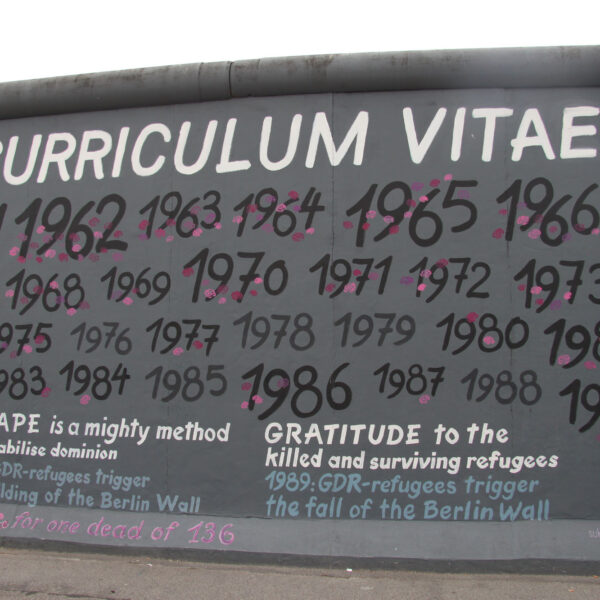 CURRICULUM VITAE
1962 1963 1964 1965 1966
1968 1969 1970 1971 1972 1973
1975 1976 1977 1978 1979 1980
1983 1984 1985 1986 1987 1988
APE is a mighty method
abilise dominion
GDR-refugees trigger
lding of the Berlin Wall
GRATITUDE to the
killed and surviving refugees
1989: GDR-refugees trigger
the fall of the Berlin Wall
for one dead of 136